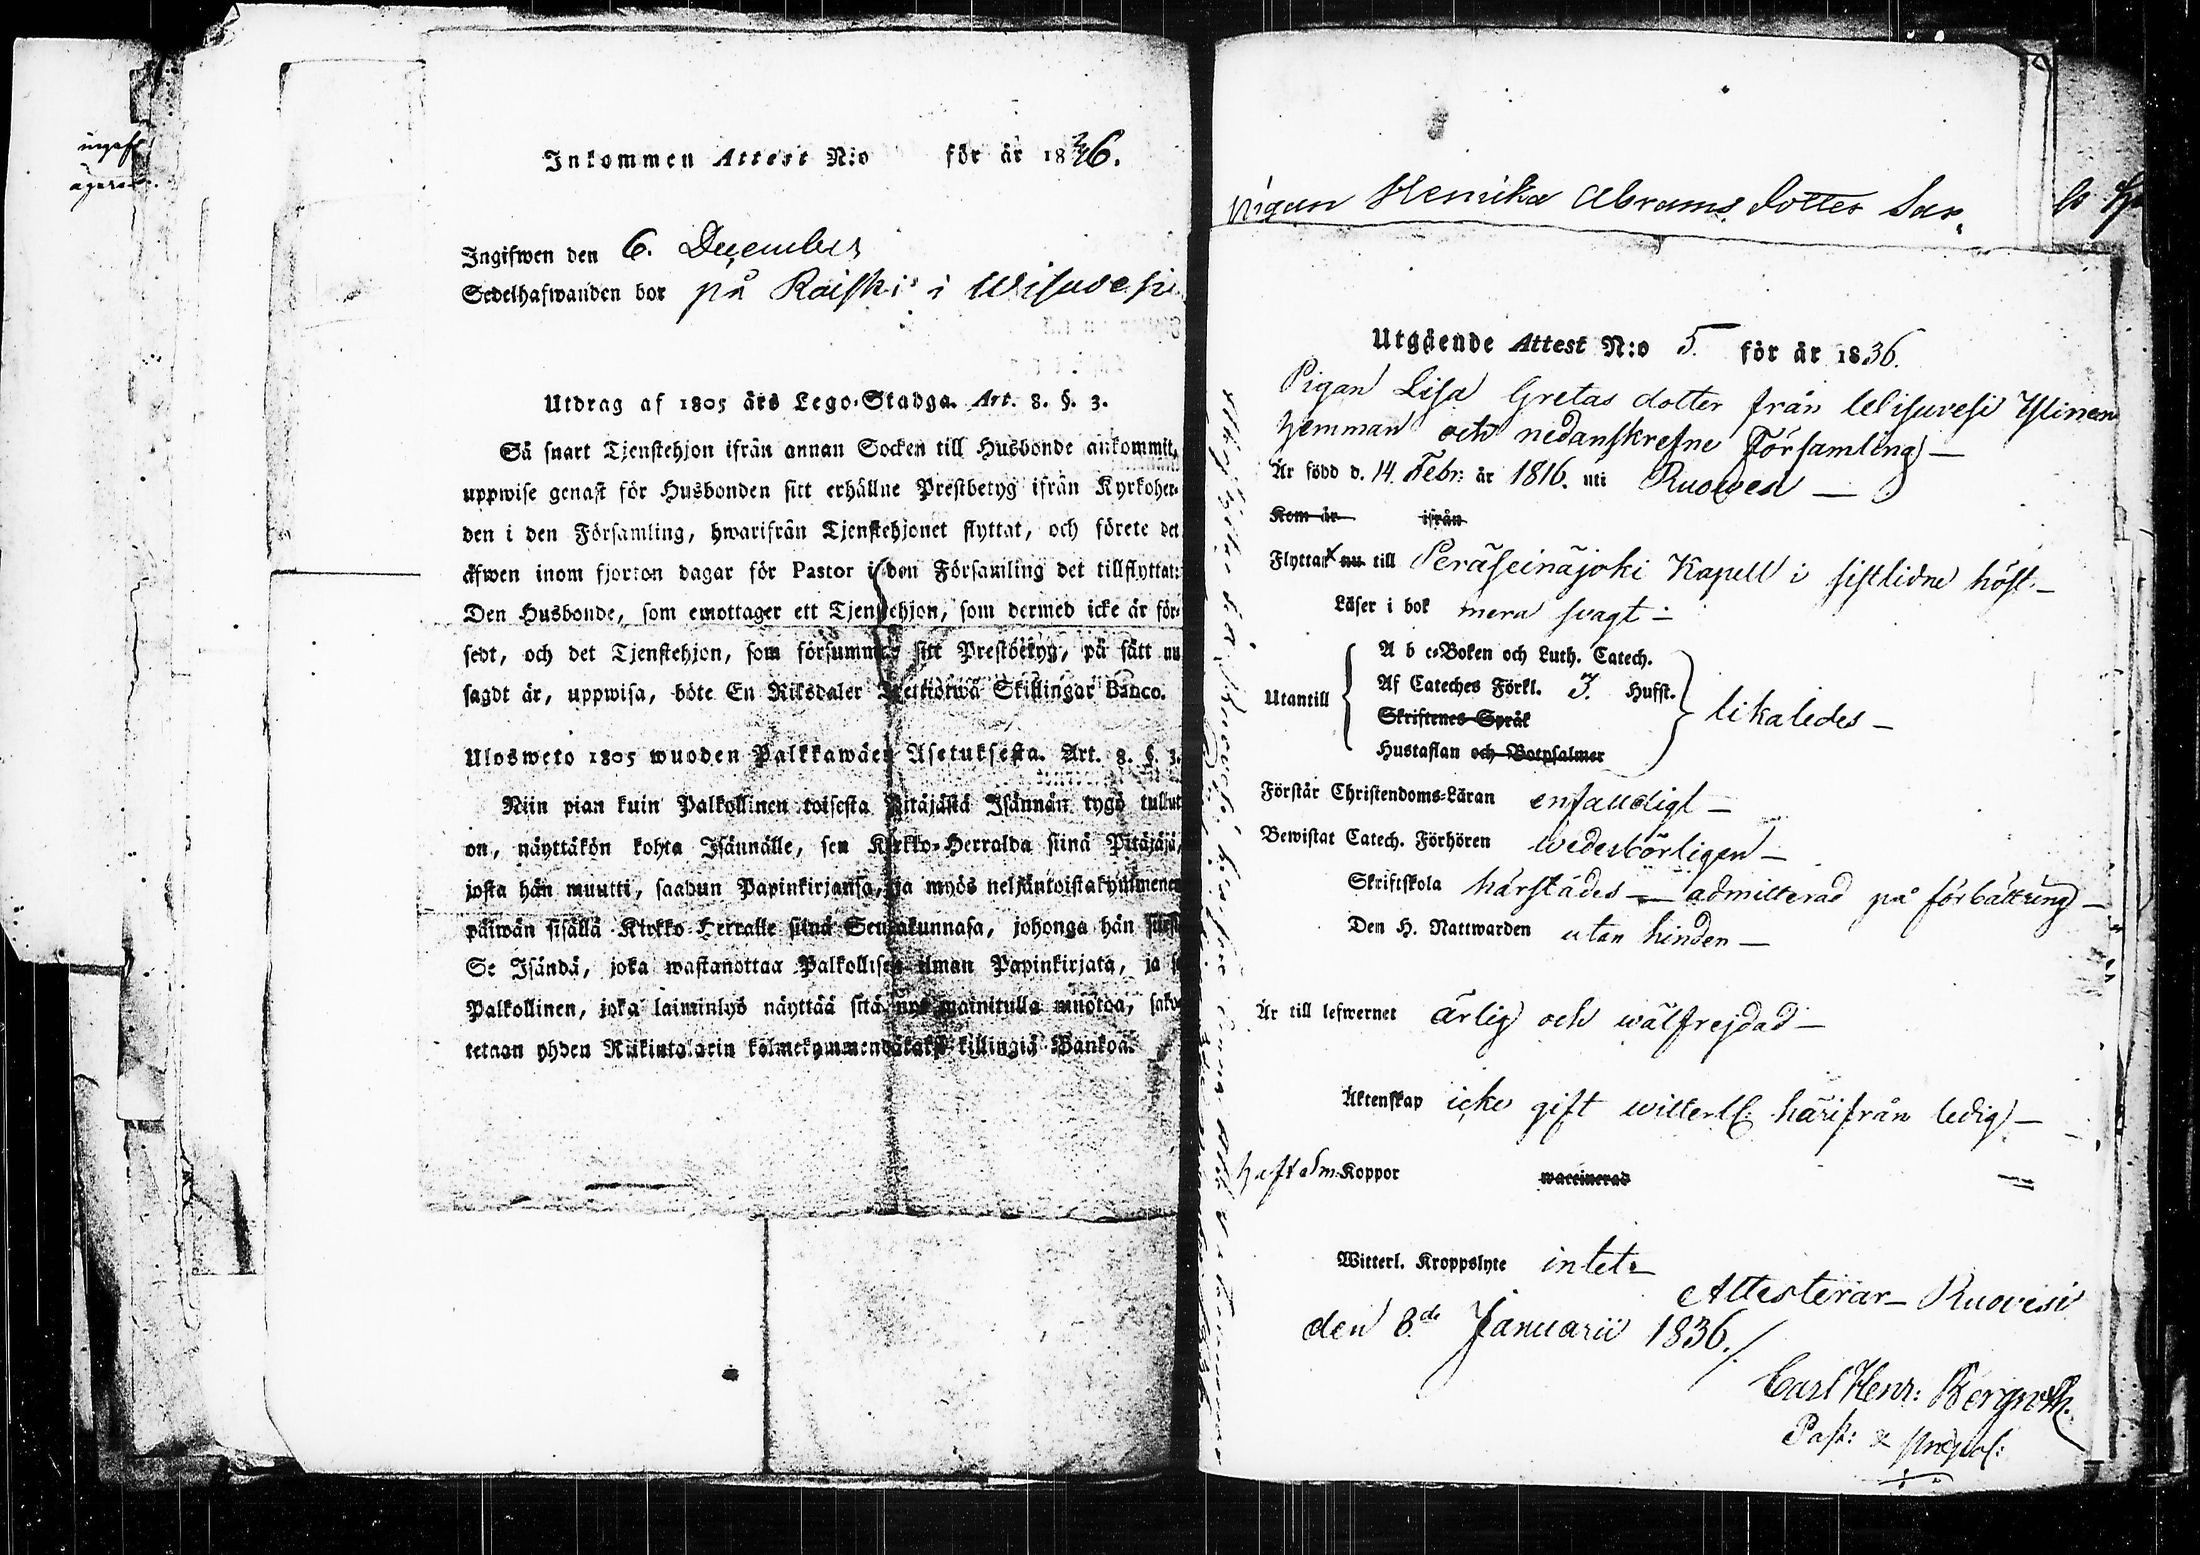 Inkommen Attest N:o för år 1836.
Ingifwen den 6. December
Sedelhafwanden bor på Raiski i Wisuvesi
Utdrag af 1805 års Lego-Stadga. Art. 8. §. 3.
Så snart Tjenstehjon ifrån annan Socken till Husbonde ankommit,
uppwise genast för Husbonden sitt erhållne Prestbetyg ifrån Kyrkoher-
den i den Församling, hwarifrån Tjenstehjonet flyttat, och förete det
äfwen inom fjorton dagar för Pastor i den Församling det tillflyttat:
Den Husbonde, som emottager ett Tjenstehjon, som dermed icke är för-
sedt, och det Tjenstehjon, som försummar sitt Prestbetyg, på sätt nu
sagdt är, uppwisa, böte En Riksdaler Trettiotwå Skillingar Banco.
Ulosweto 1805 wuoden Palkkawäen Asetuksesta. Art. 8. §. 3.
Niin pian kuin Palkollinen toisesta Pitäjästä Isännän tygö tullut
on, näyttäkön kohta Isännälle, sen Kirkko-Herralda siinä Pitäjäjä,
josta hän muutti, saadun Papinkirjansa, ja myös neljäntoistakymmenen
päiwän sisällä Kirkko-Herralle siinä Seurakunnasa, johonga hän
Se Isändä, joka wastanottaa Palkollisen ilman Papinkirjata, ja se
Palkollinen, joka laiminlyö näyttää sitä nyt mainitulla muotoa, sako-
tetaan yhden Riikintalarin kolmekymmendäkaksi killingiä Bankoa.
Pigan Henrika Abrams dotter
Utgående Attest N:o 5. för år 1836.
Pigan Lisa Gretas dotter från Wisuvesi Yslinen
hemman och nedanskrefne Församling —
Är född d. 14. Febr: år 1816. uti Ruovesi —
Kom år ifrån
Flyttat nu till Peräseinäjoki Kapell i sistlidne höst —
Läser i bok mera svagt —
A b c-Boken och Luth. Catech.
Utantill Af Cateches Förkl. 3. Hufst. likaledes —
Skriftenes Språk
Hustaflan och Botpsalmer
Förstår Christendoms-Läran enfaldigt —
Bewistat Catech. Förhören wederbörligen —
Skriftskola härstädes — admitterad på förbättring —
Den H. Nattwarden utan hinder —
Är till lefwernet ärlig och wälfrejdad —
Äktenskap icke gift witterl: härifrån ledig —
haft sm. Koppor waccinerad
Witterl. Kroppslyte intet —
Attesterar — Ruovesi
den 8de Januarii 1836./.
Carl Henr: Bergroth.
Past: & præpos: